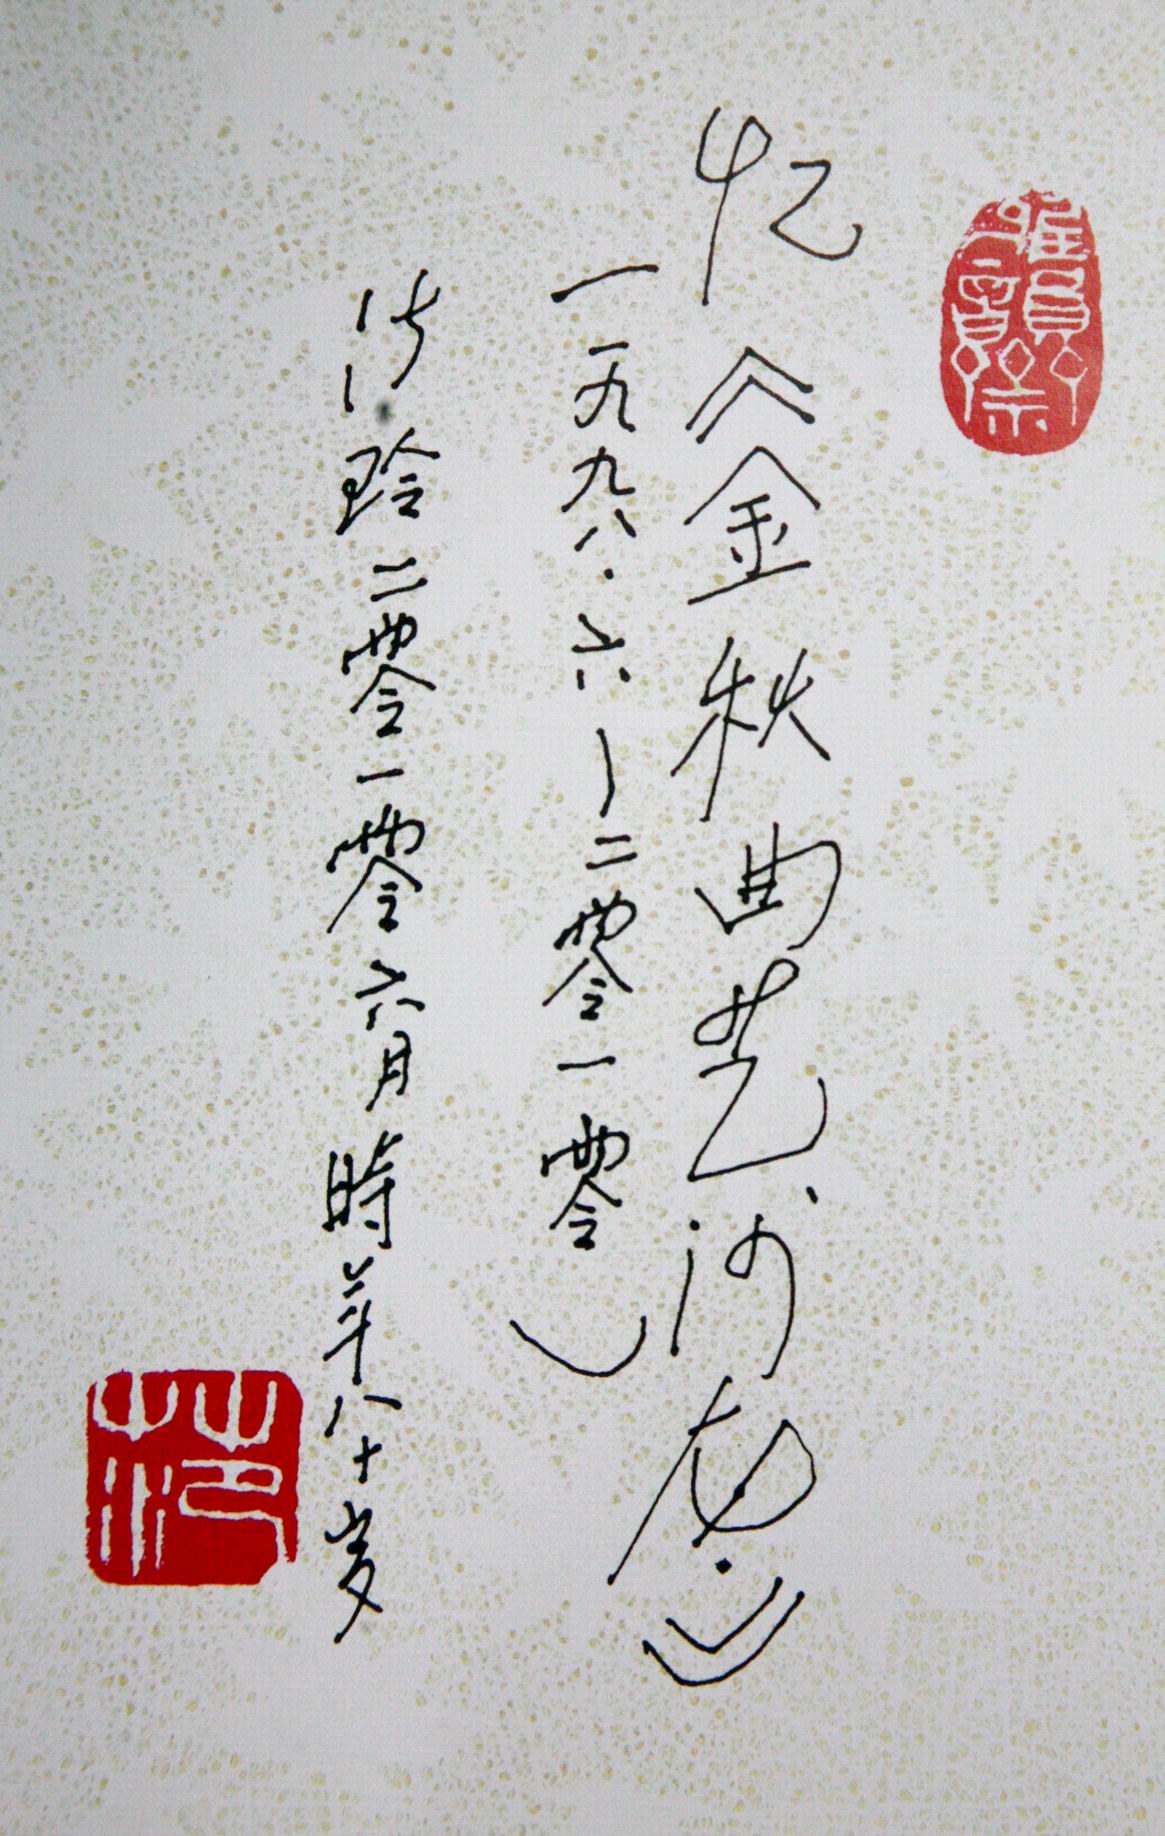 忆《金秋曲艺沙龙》
（一九九八·六—二零一零）
玲二零一零六月時年八十岁